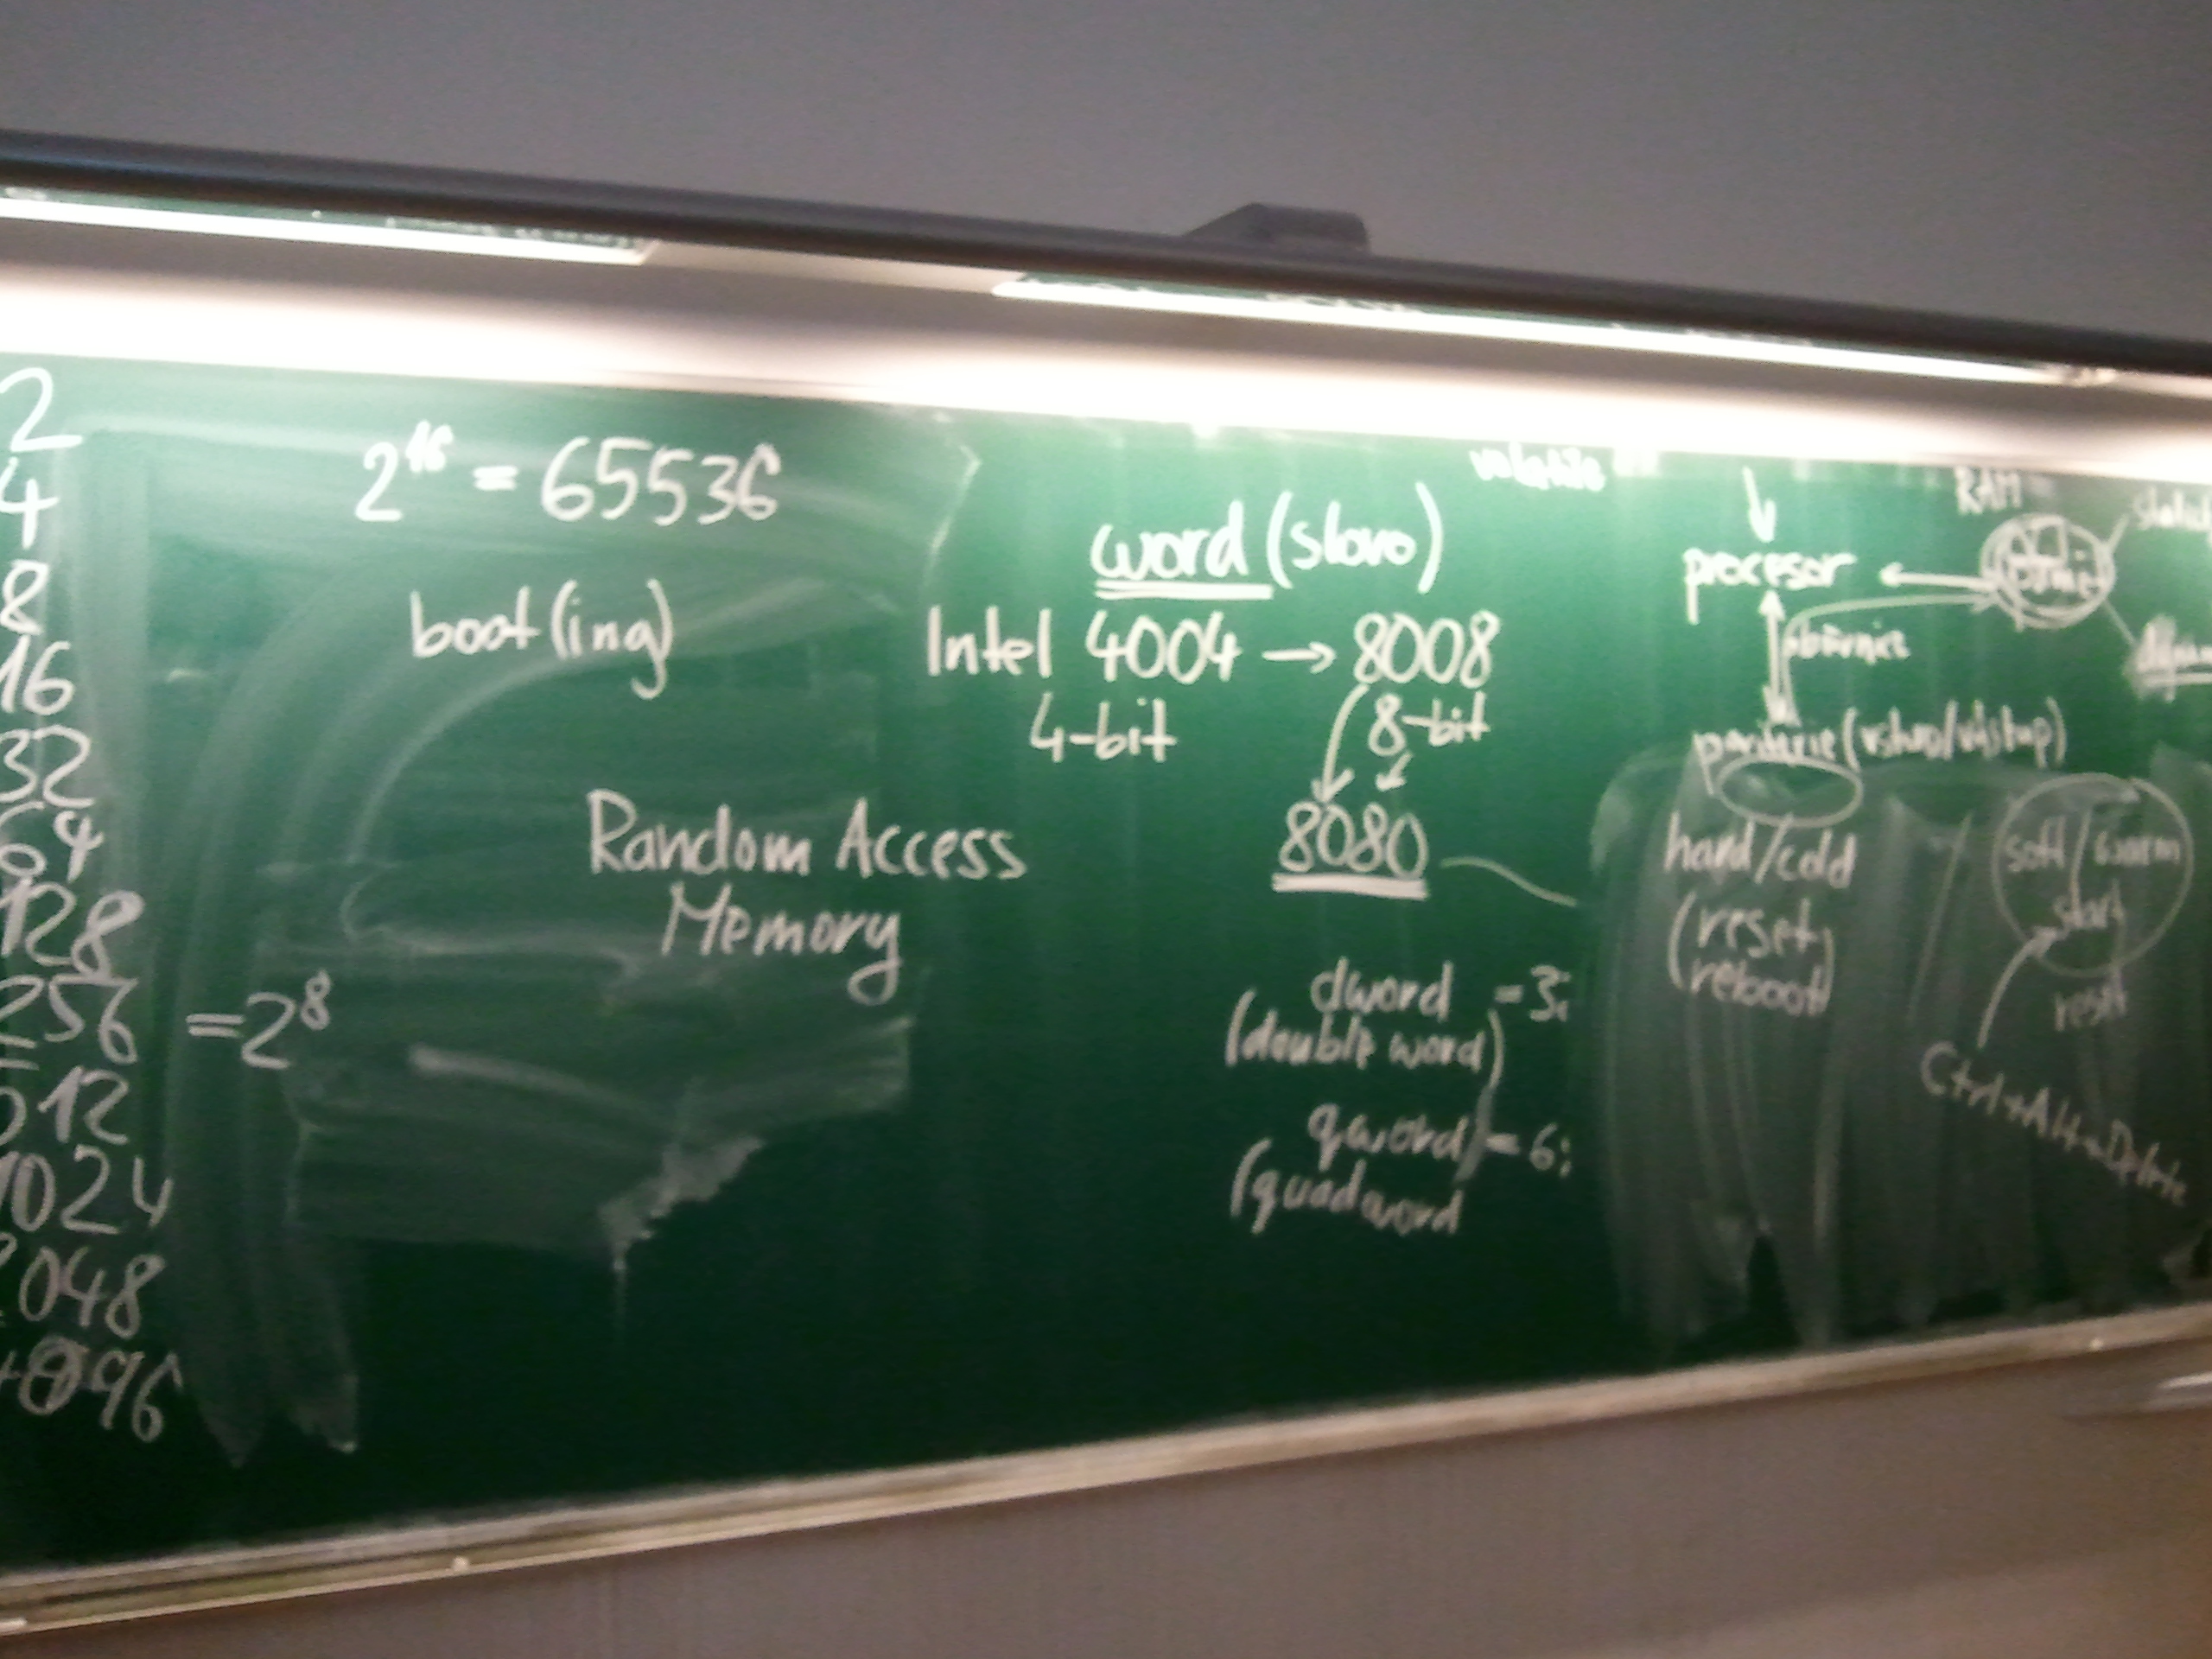 2
4
8
16
32
64
128
256 = 2⁸
512
1024
2048
4096
2¹⁶ = 65536
boot(ing)
Random Access
Memory
word (slovo)
Intel 4004 → 8008
4-bit 8-bit
8080
dword = 3
(double word)
qword = 6
(quadword
RAM
procesor
periferie (vstup/výstup)
hard/cold
(reset,
reboot)
soft/warm
start
reset
Ctrl+Alt+Delete